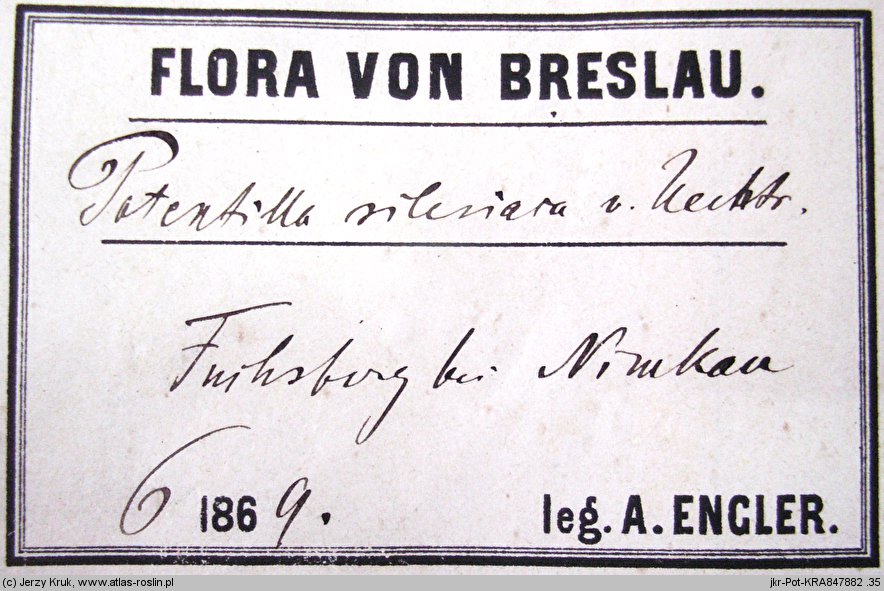 FLORA VON BRESLAU.
Potentilla silesiaca v. Uechtr.
Fuchsberg bei Nimkau
6 1869. leg. A. ENGLER.
(c) Jerzy Kruk, www.atlas-roslin.pl jkr-Pot-KRA847882_35